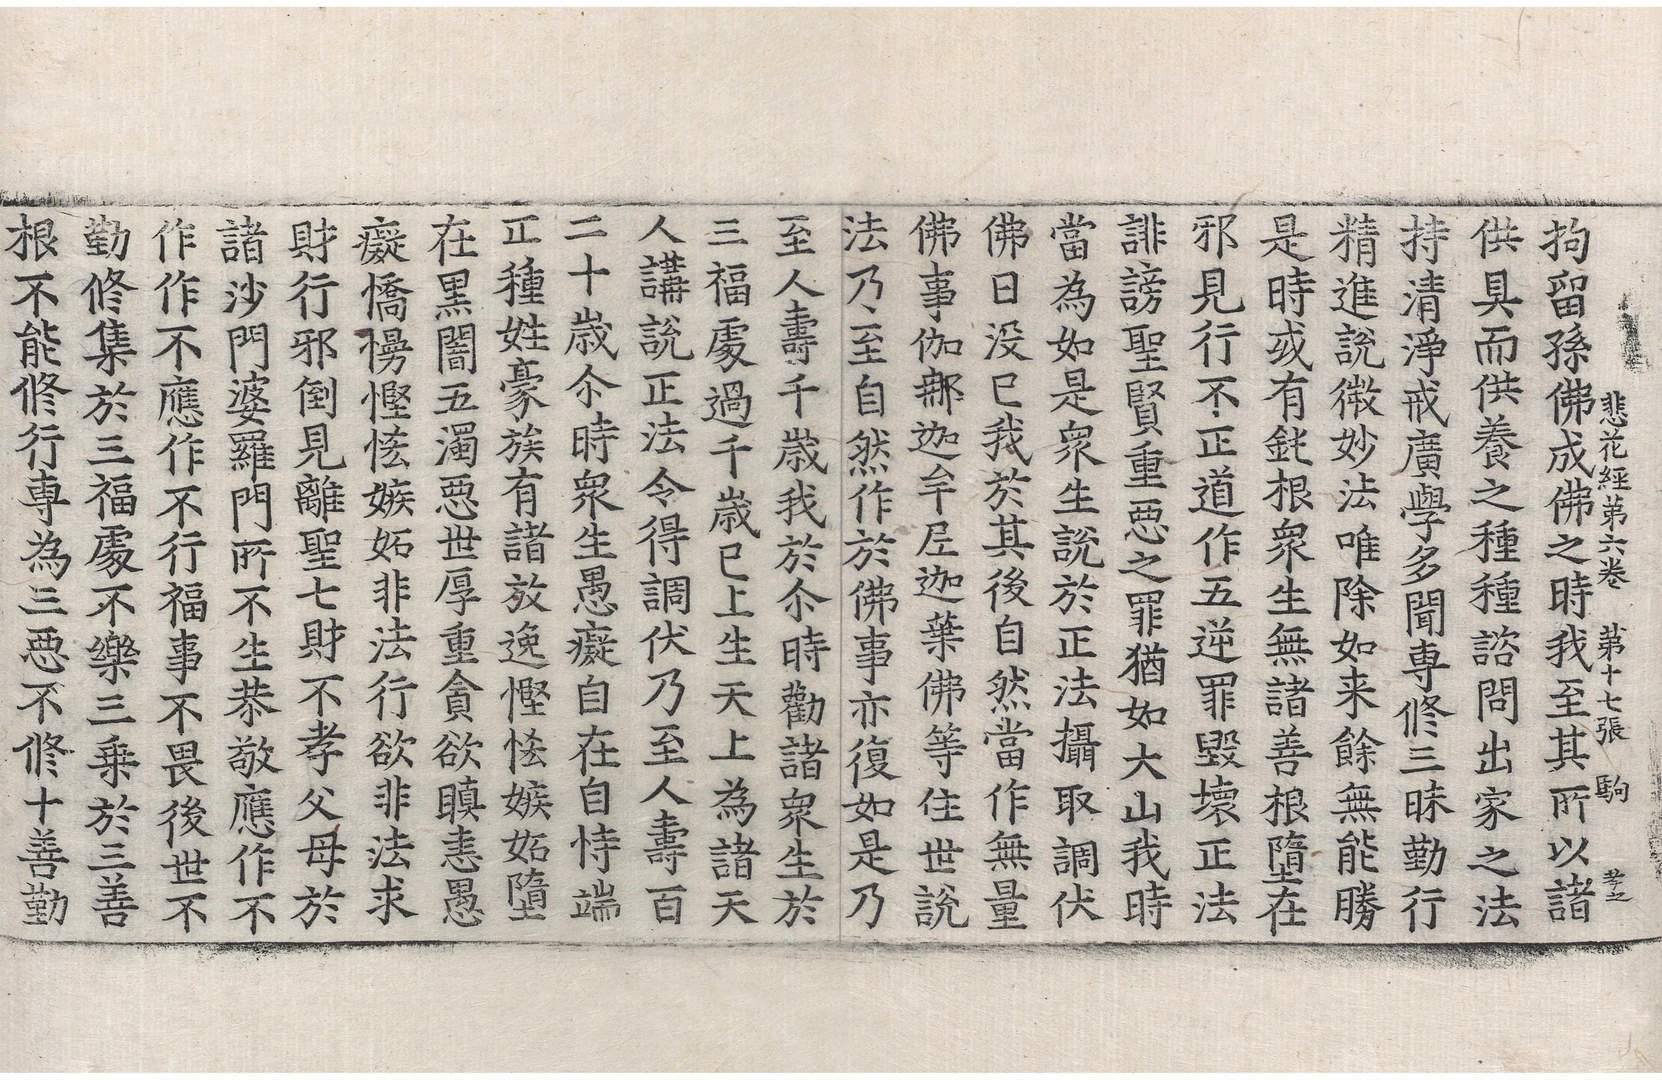 悲花經第六卷　第十七張　駒
拘留孫佛成佛之時我至其所以諸
供具而供養之種種諮問出家之法
持清淨戒廣學多聞專修三昧勤行
精進說微妙法唯除如来餘無能勝
是時或有鈍根衆生無諸善根墮在
邪見行不正道作五逆罪毀壞正法
誹謗聖賢重惡之罪猶如大山我時
當為如是衆生說於正法攝取調伏
佛日没已我於其後自然當作無量
佛事伽那迦牟尼迦葉佛等住世說
法乃至自然作於佛事亦復如是乃
至人壽千歲我於尒時勸諸衆生於
三福處過千歲已上生天上為諸天
人講說正法令得調伏乃至人壽百
二十歲尒時衆生愚癡自在自恃端
正種姓豪族有諸放逸慳悋嫉妬墮
在黑闇五濁惡世厚重貪欲瞋恚愚
癡憍慢慳悋嫉妬非法行欲非法求
財行邪倒見離聖七財不孝父母於
諸沙門婆羅門所不生恭敬應作不
作作不應作不行福事不畏後世不
勤修集於三福處不樂三乗於三善
根不能修行專為三惡不修十善勤